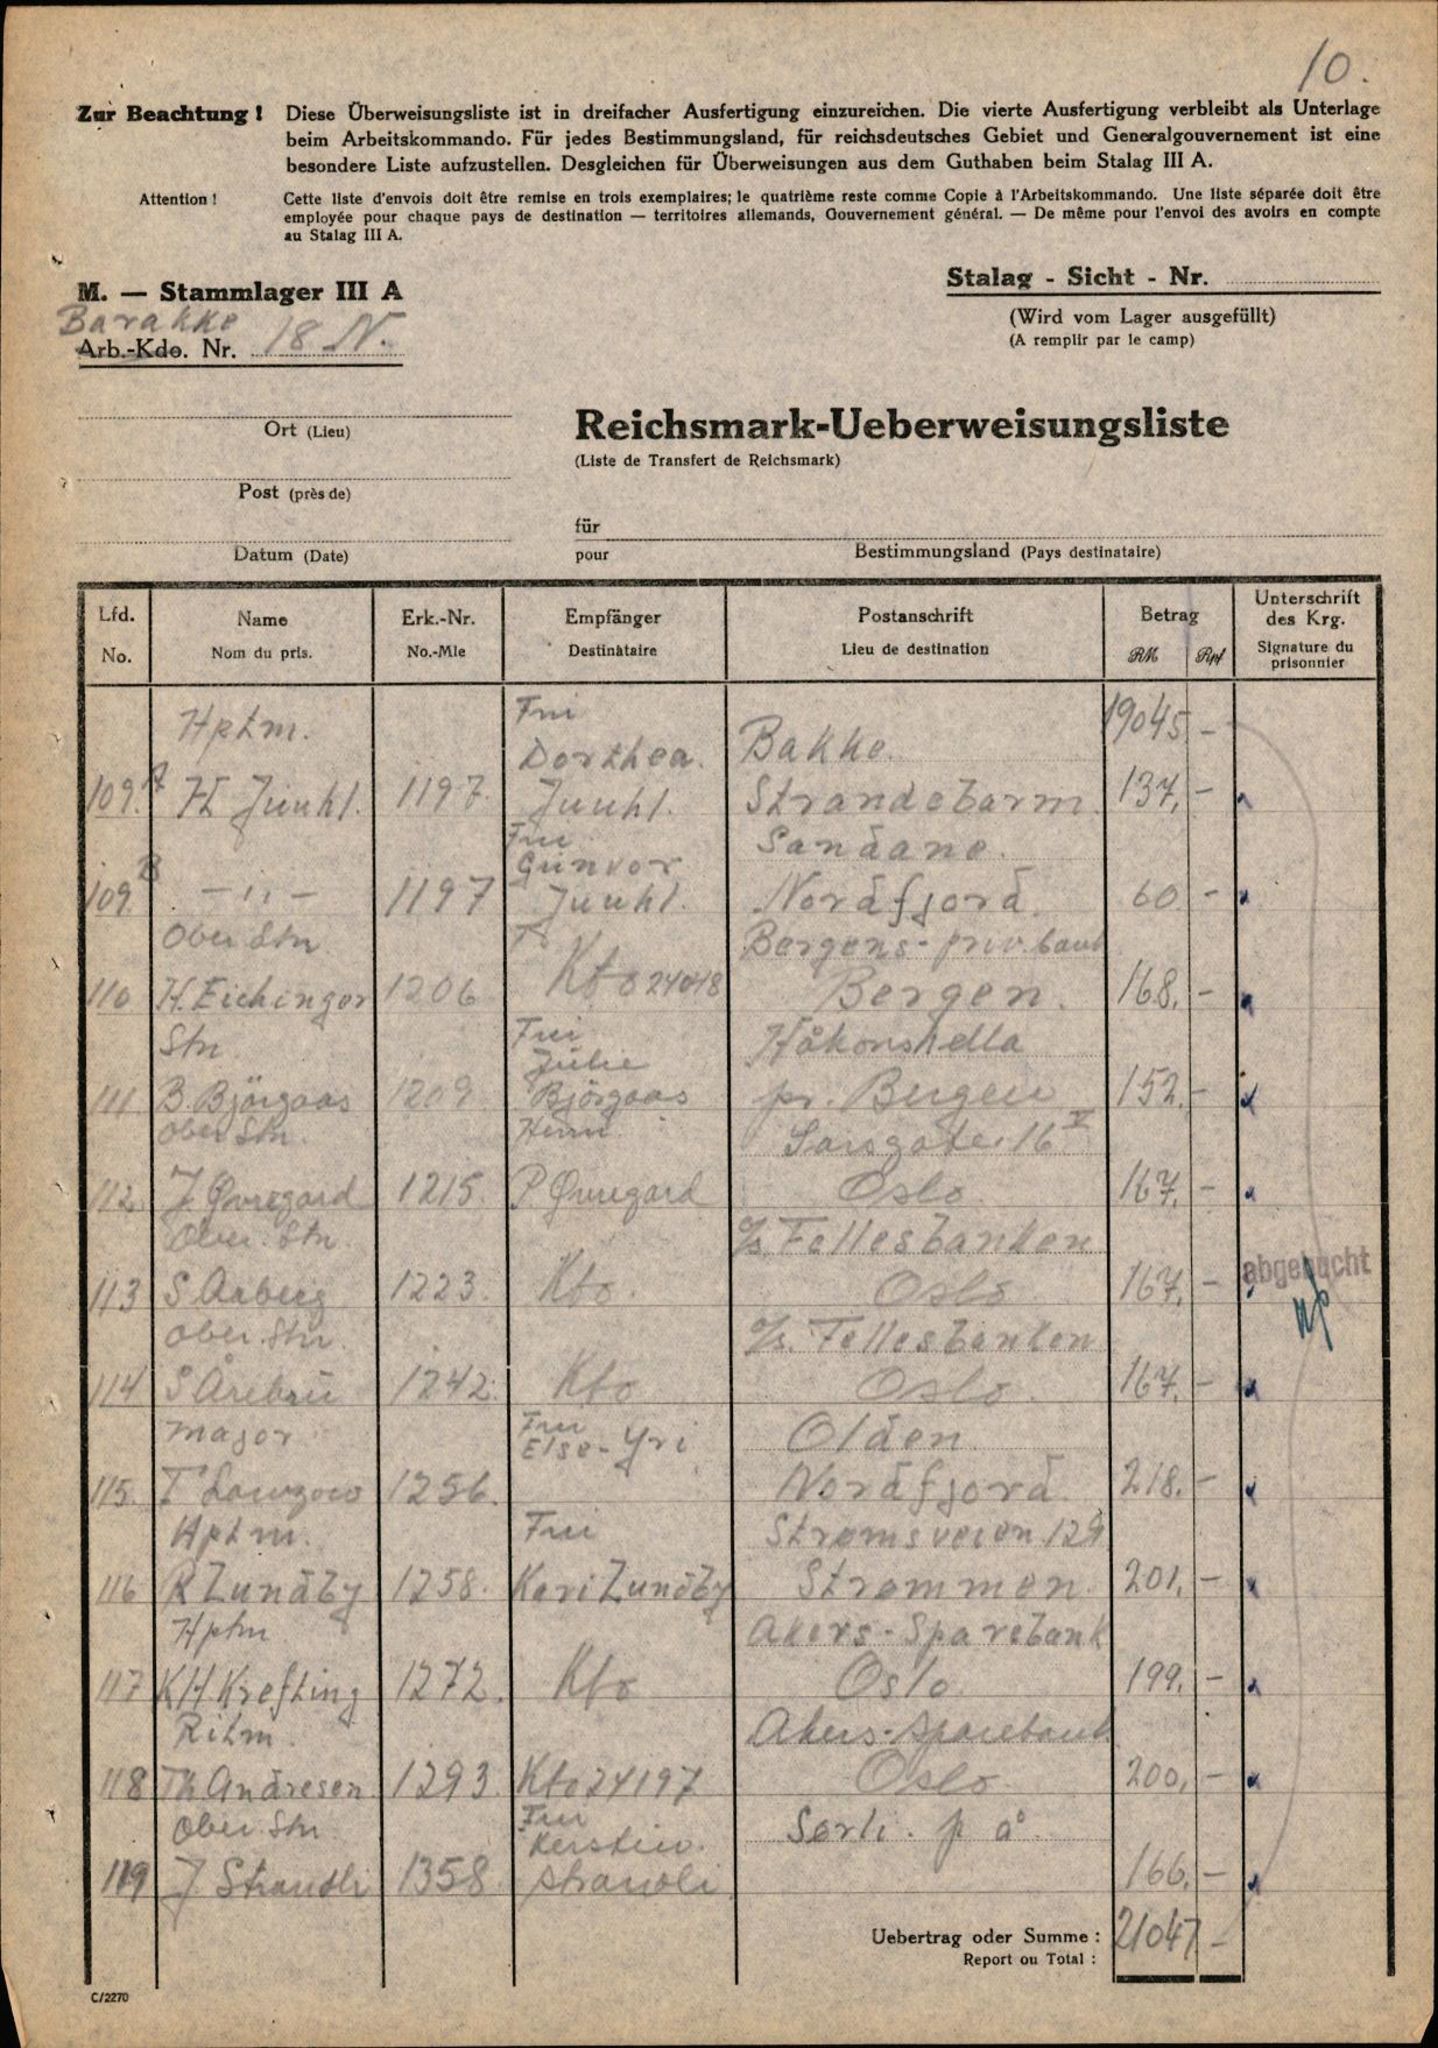 10.
Zur Beachtung! Diese Überweisungsliste ist in dreifacher Ausfertigung einzureichen. Die vierte Ausfertigung verbleibt als Unterlage
beim Arbeitskommando. Für jedes Bestimmungsland, für reichsdeutsches Gebiet und Generalgouvernement ist eine
besondere Liste aufzustellen. Desgleichen für Überweisungen aus dem Guthaben beim Stalag III A.
Attention! Cette liste d'envois doit être remise en trois exemplaires; le quatrième reste comme Copie à l'Arbeitskommando. Une liste séparée doit être
employée pour chaque pays de destination — territoires allemands, Gouvernement général. — De même pour l'envoi des avoirs en compte
au Stalag III A.
M. — Stammlager III A
Stalag - Sicht - Nr.
(Wird vom Lager ausgefüllt)
(A remplir par le camp)
Barakke
Arb.-Kdo. Nr. 18 N.
Ort (Lieu)
Reichsmark-Ueberweisungsliste
(Liste de Transfert de Reichsmark)
Post (près de)
für
Datum (Date)
pour Bestimmungsland (Pays destinataire)
Lfd. Name Erk.-Nr. Empfänger Postanschrift Betrag Unterschrift des Krg.
No. Nom du pris. No.-Mle Destinataire Lieu de destination RM Rpf Signature du prisonnier
Hptm. Fru 19045 -
Dorthea. Bakke.
109. A H Juuhl. 1197. Juuhl. Strandebarm. 137, -
Fru Sandane.
Gunvor
109. B - " - 1197 Juuhl. Nordfjord. 60 -
Ober Stn. Bergens - priv. bank
110 H. Eichinger 1206 Kto 24018 Bergen. 168, -
Stn Fru Håkonshella
Julie
111 B. Björgaas 1209 Björgaas pr. Bergen 152, -
Ober Stn. Herrn Sarsgate. 16 V
112 J. Øvregard 1215. P Øvregard Oslo 167, -
Ober. Stn. a/s Fellesbanken
113 S Aaberg 1223. Kto. Oslo 167, - abgebucht
Ober. Stn. a/s. Fellesbanken
114 1242. Kto Oslo. 167, -
Major Fru Else - Yri Olden.
115. T 1256. Nordfjord. 218. -
Hptm. Fru Strømsveien 129
116 R Lundby 1258. Kari Lundby Strømmen. 201, -
Hptm Akers - Sparebank
117 K H Krefting 1272. Kto Oslo. 199, -
Ritm. Akers - sparebank
118 Th Andresen 1293. Kto 24197 Oslo 200, -
Ober. Stn Fru Sørli. p å.
Kerstin.
119 J Strandli 1358 Strandli 166, -
Uebertrag oder Summe : 21047 -
Report ou Total :
C/2270